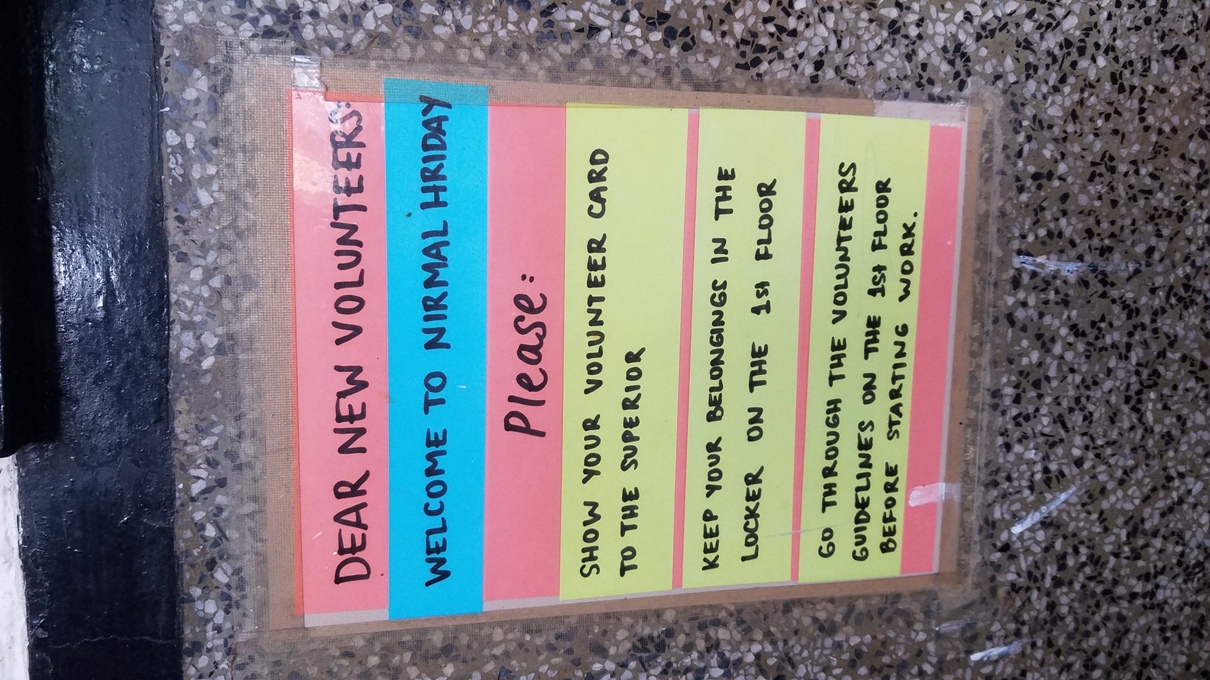 DEAR NEW VOLUNTEERS:
WELCOME TO NIRMAL HRIDAY
Please:
SHOW YOUR VOLUNTEER CARD
TO THE SUPERIOR
KEEP YOUR BELONGINGS IN THE
LOCKER ON THE 1st FLOOR
GO THROUGH THE VOLUNTEERS
GUIDELINES ON THE 1st FLOOR
BEFORE STARTING WORK.